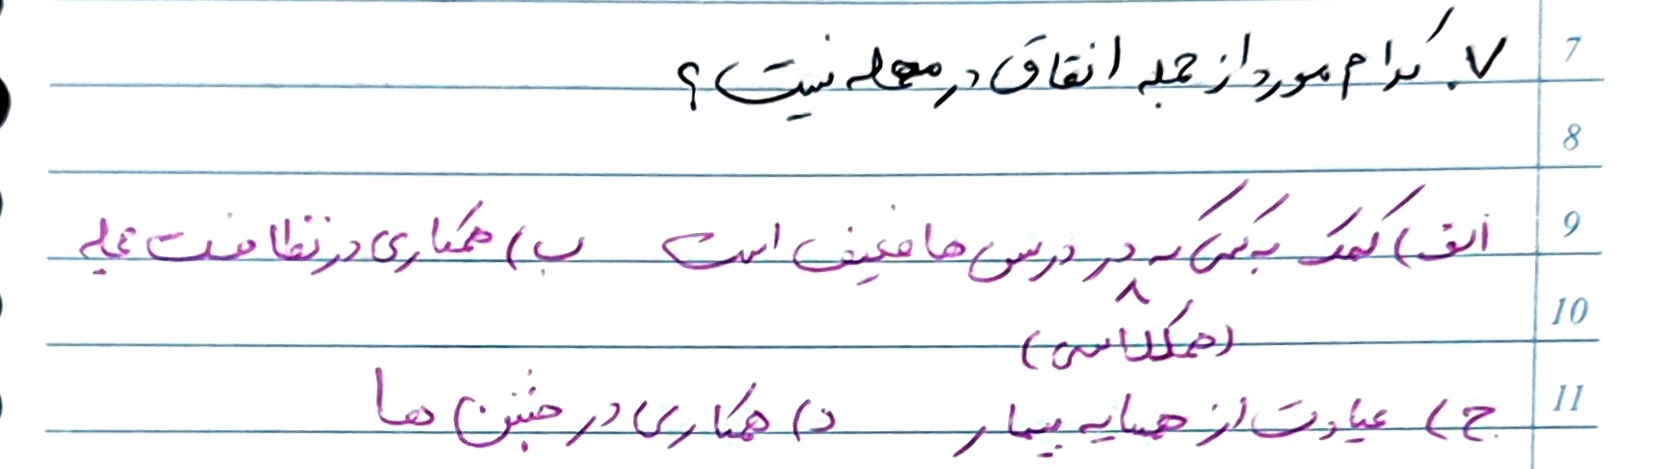 7
۷. کدام مورد از جمله انفاق در محله نیست؟
8
9
الف) کمک به کسی که در درس ها ضعیف است ب) همکاری در نظافت محله
10
(همکلاسی)
11
ج) عیادت از همسایه بیمار د) همکاری در جشن ها